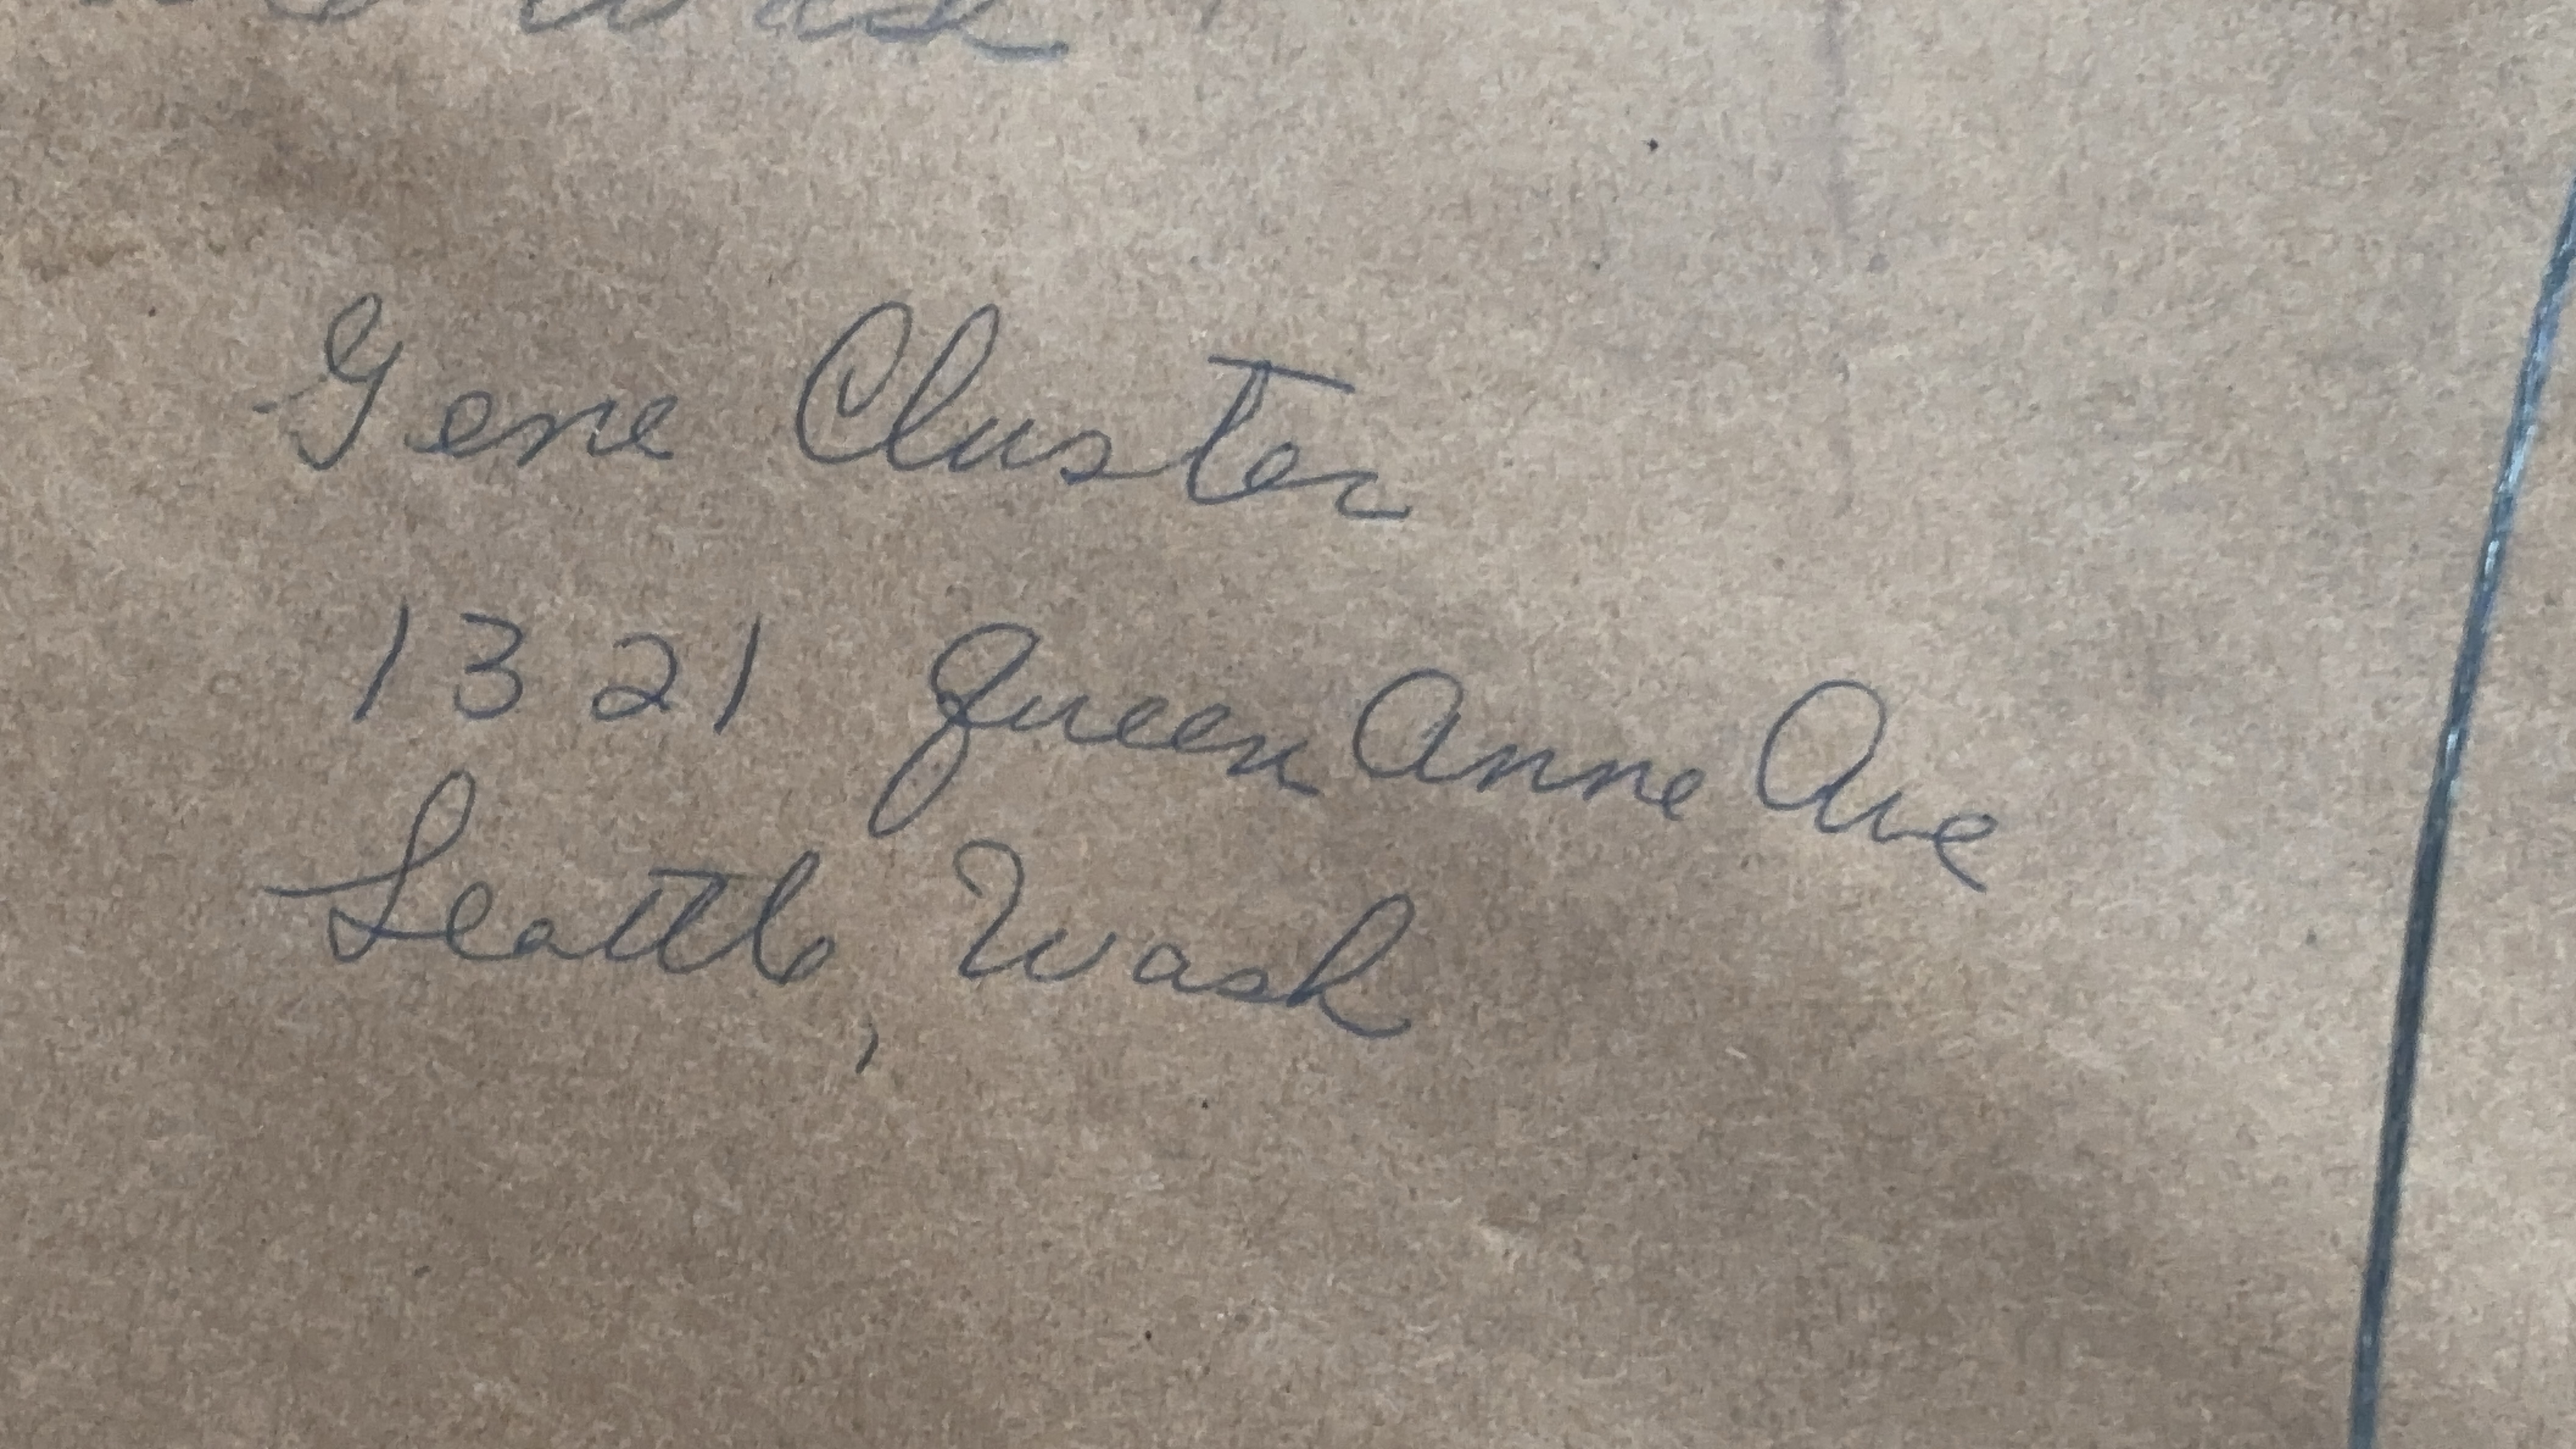 Wash
Gene Cluster
1321 Queen Anne Ave
Seattle, Wash